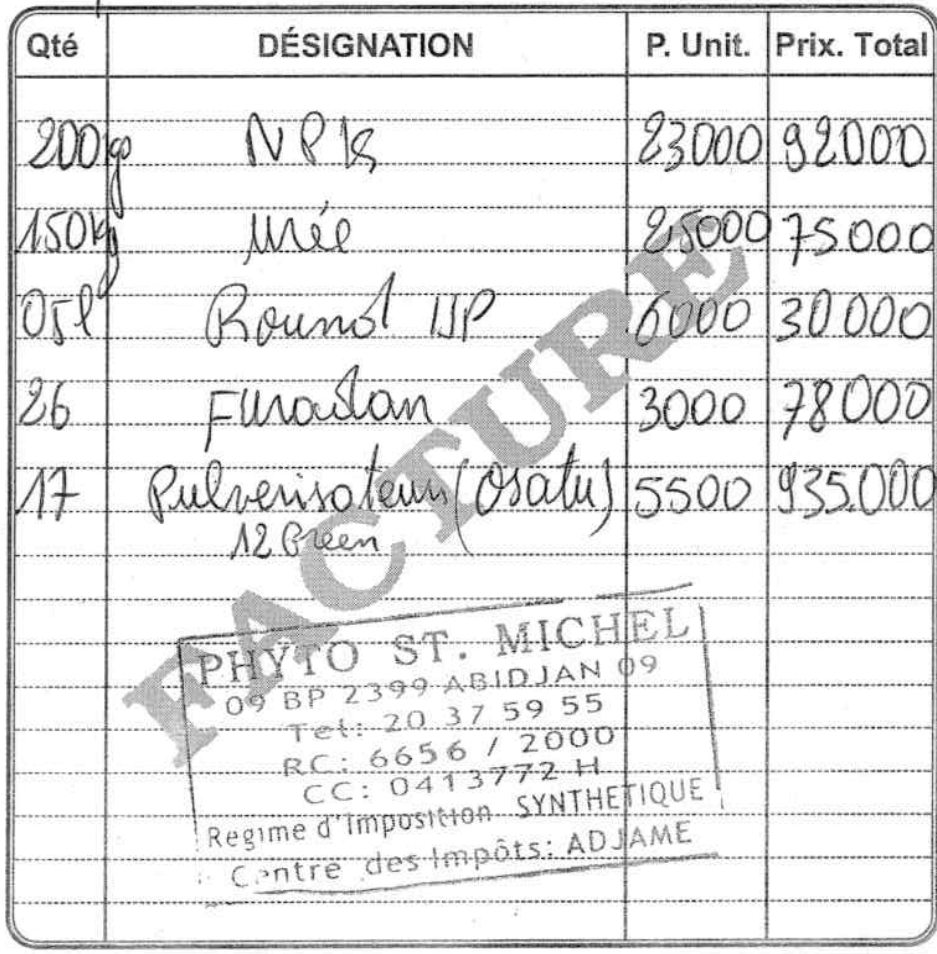 Qté DÉSIGNATION P. Unit. Prix. Total
200kg NPK 23000 92000
150kg Urée 25000 75000
05l Round UP 6000 30000
26 Furadan 3000 78000
17 Pulverisateur (Osatu) 5500 935.000
12 Green
FACTURE
PHYTO ST. MICHEL
09 BP 2399 ABIDJAN 09
Tel: 20 37 59 55
RC: 6656 / 2000
CC: 0413772 H
Regime d'Imposition SYNTHETIQUE
Centre des Impôts: ADJAME